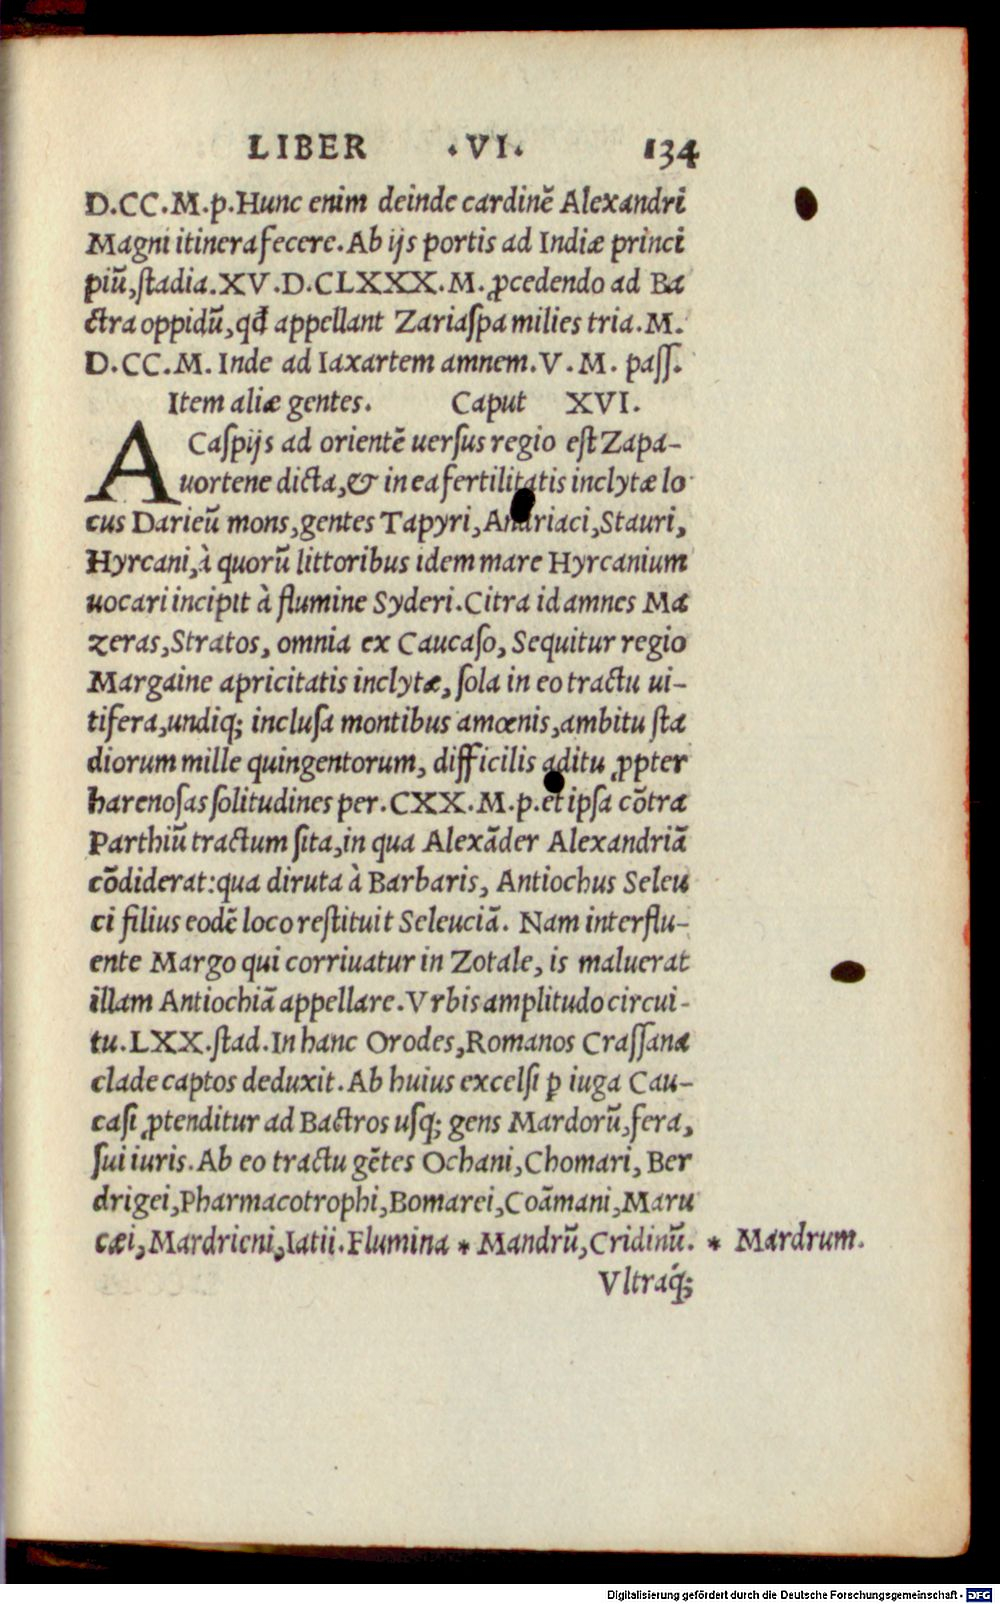 LIBER .VI. 134
D.CC.M.p.Hunc enim deinde cardinē Alexandri
Magni itinera fecere.Ab ijs portis ad Indiæ princi
piū,ſtadia.XV.D.CLXXX.M.ꝓcedendo ad Ba
ctra oppidū,qđ appellant Zariaſpa milies tria.M.
D.CC.M. Inde ad Iaxartem amnem.V.M. paſſ.
Item aliæ gentes. Caput XVI.
A Caſpijs ad orientē uerſus regio eſt Zapa-
uortene dicta,& in ea fertilitatis inclytæ lo
cus Darieū mons,gentes Tapyri,Andriaci,Stauri,
Hyrcani,à quorū littoribus idem mare Hyrcanium
uocari incipit à flumine Syderi.Citra id amnes Ma
zeras,Stratos, omnia ex Caucaſo, Sequitur regio
Margaine apricitatis inclytæ, ſola in eo tractu ui-
tifera,undiq; incluſa montibus amœnis,ambitu ſta
diorum mille quingentorum, difficilis aditu ꝓpter
harenoſas ſolitudines per.CXX.M.p.et ipſa cōtra
Parthiū tractum ſita,in qua Alexāder Alexandriā
cōdiderat:qua diruta à Barbaris, Antiochus Seleu
ci filius eodē loco reſtituit Seleuciā. Nam interflu-
ente Margo qui corriuatur in Zotale, is maluerat
illam Antiochiā appellare.Vrbis amplitudo circui-
tu.LXX.ſtad.In hanc Orodes,Romanos Craſſana
clade captos deduxit.Ab huius excelſi ꝑ iuga Cau-
caſi ꝓtenditur ad Bactros uſq; gens Mardorū,fera,
ſui iuris.Ab eo tractu gētes Ochani,Chomari, Ber
drigei,Pharmacotrophi,Bomarei,Coāmani,Maru
cæi,Mardrieni,Iatii.Flumina * Mandrū,Cridinū. * Mardrum.
Vltraq́;
Digitalisierung gefördert durch die Deutsche Forschungsgemeinschaft - DFG